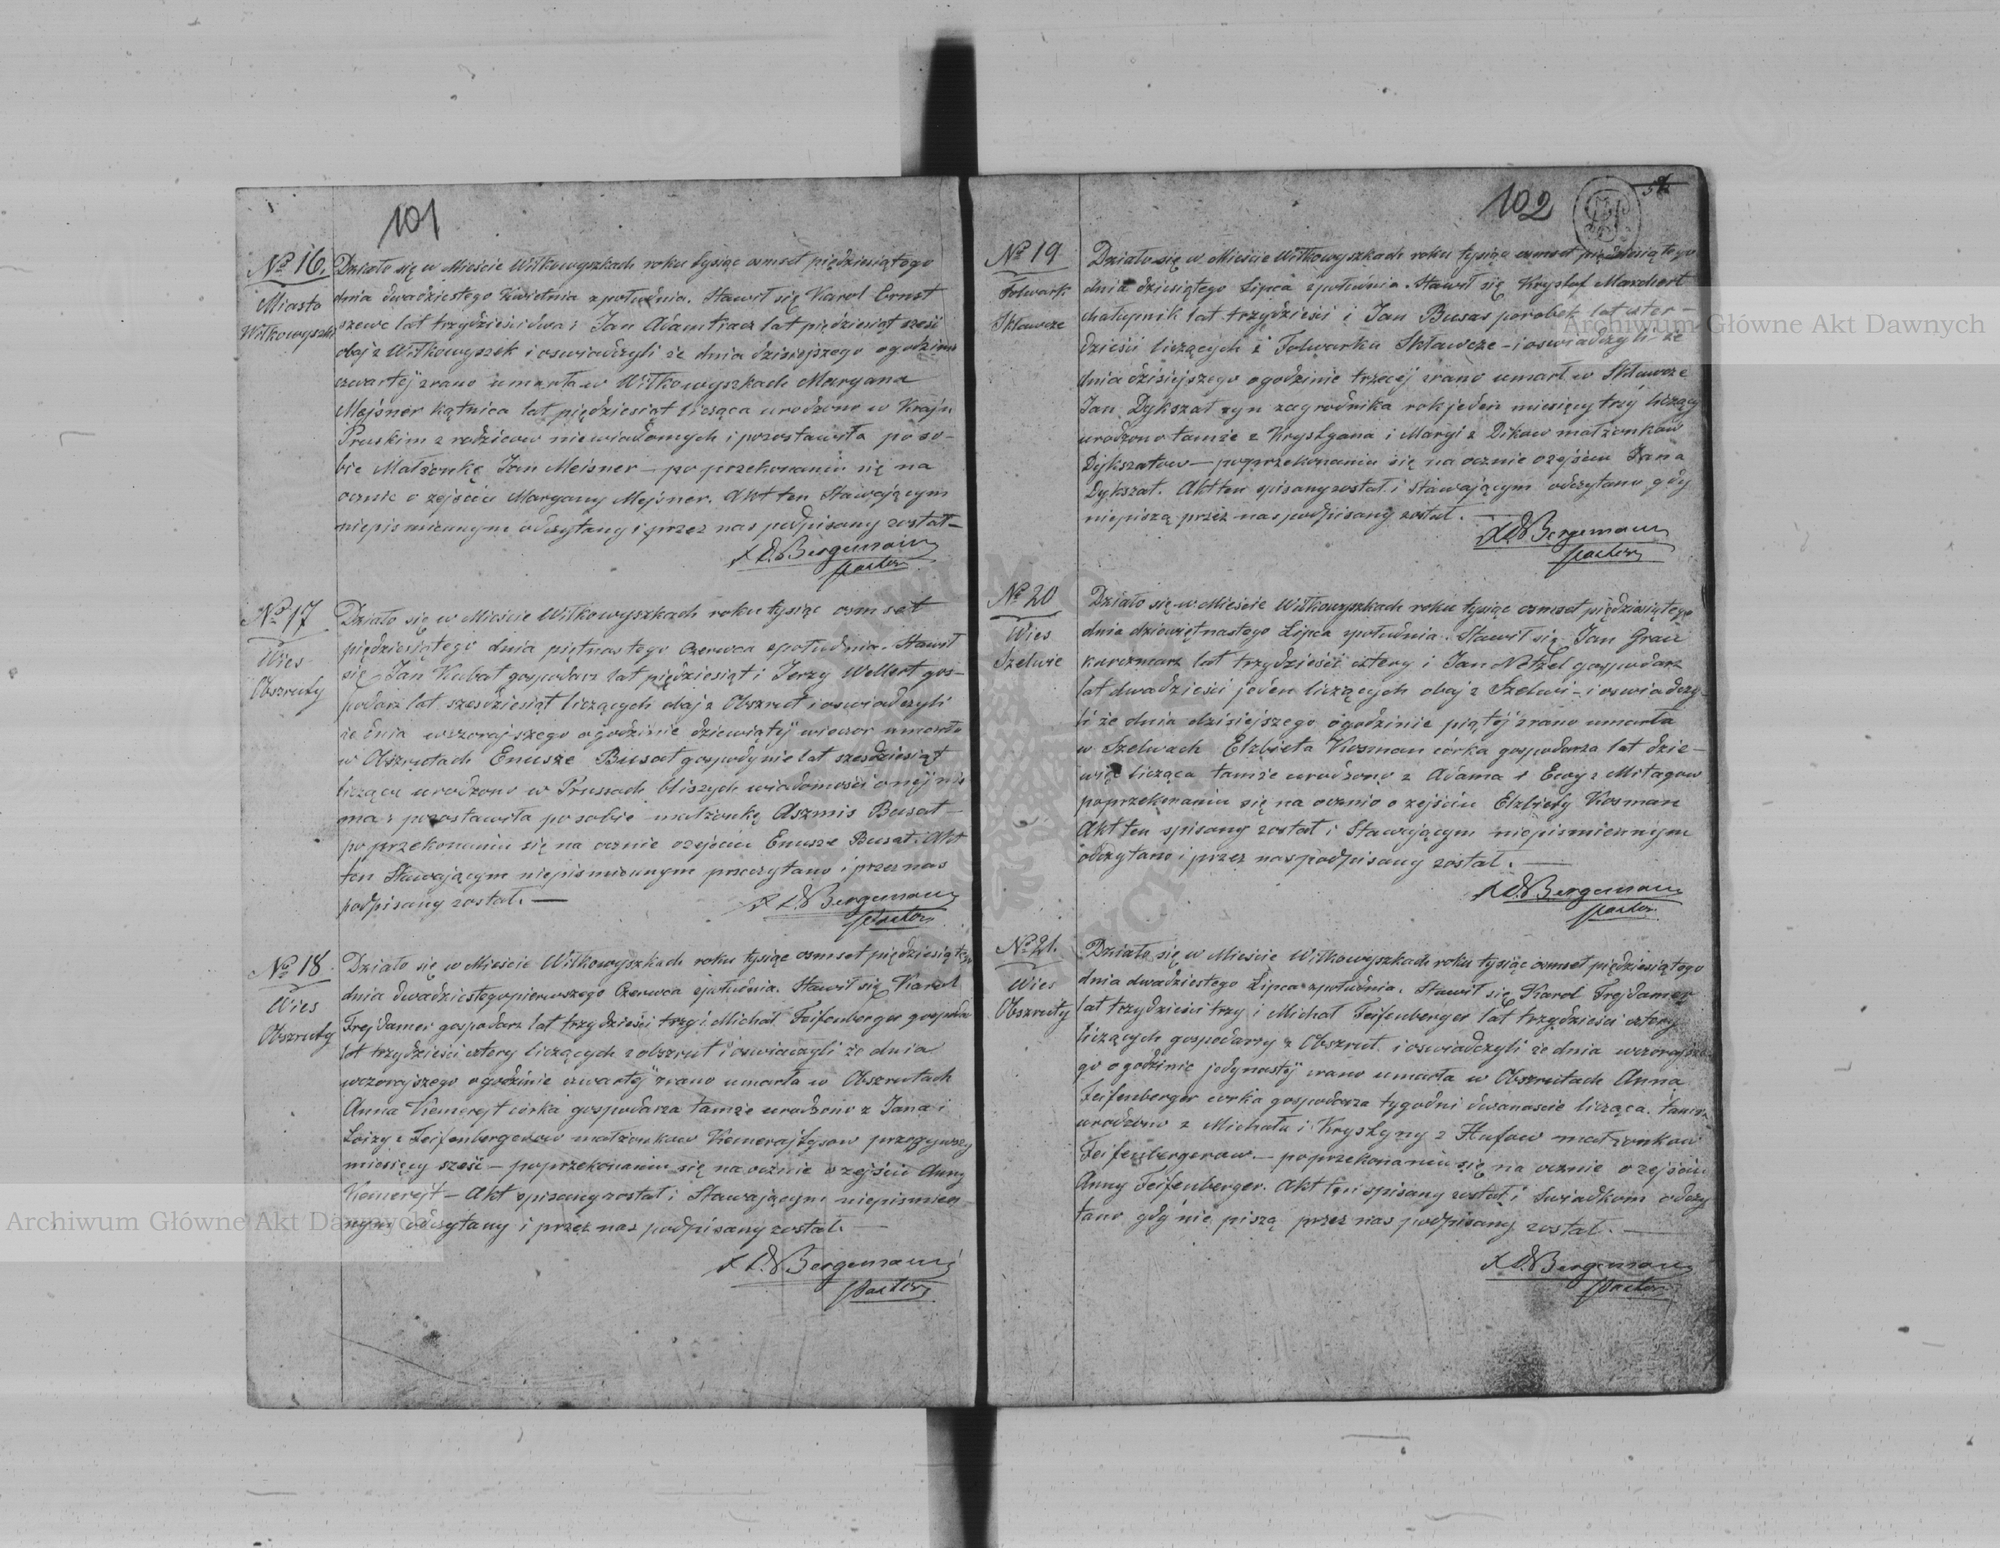 101
No 16.
Miasto
Wiłkowyszki
Działo się w Mieście Wiłkowyszkach roku tysiąc osmset piędziesiątego
dnia dwadziestego Kwietnia zpołudnia. Stawił się Karol Ernst
szewc lat trzydzieści dwa i Jan Adam tracz lat pięдziesiąt sześć
obaj z Wiłkowyszek i oswiadczyli że dnia dzisiejszego ogodzinie
czwartéj zrano umarła w Wiłkowyszkach Maryana
Mejsner kątnica lat pięдziesiąt licząca urodzono w Kraju
Pruskim z rodziców niewiadomych i pozostawiła po so-
bie Małżonkę Jan Meisner — po przekonaniu się na
ocznie o zejściu Maryany Mejsner. Akt ten Stawającym
niepismiennym odczytany i przez nas podpisany został —
Bergemann
Pastor
No 17
Wies
Obszruty
Działo się w Mieście Wiłkowyszkach roku tysiąc osmset
piędziesiątego dnia piętnastego Czerwca zpołudnia. Stawił
się Jan Kubat gospodarz lat pięдziesiąt i Jerzy Wellert gos-
podarz lat szesdziesiąt liczących obaj z Obszrut i oswiadczyli
że dnia wczorajszego ogodzinie dziewiątéj wieczor umarła
w Obszrutach Enusze Busat gospodynie lat szesdziesiąt
licząca urodzono w Prusach bliszych wiadomości onéj nie
ma i pozostawiła po sobie małżonkę Aszmis Busat —
po przekonaniu się na ocznie ozejściu Enusze Busat. Akt
ten Stawającym niepismiennym przeczytano i przez nas
podpisany został. —
Bergemann
Pastor
No 18
Wies
Obszruty
Działo się w Mieście Wiłkowyszkach roku tysiąc osmset pięдziesiątego
dnia dwadziestegopierwszego Czerwca zpołudnia. Stawił się Karol
Frejdamer gospodarz lat trzydzieści trzy i Michał Feifenberger gospodarz
lat trzydzieści cztery liczących z obszrut i oswiaczyli że dnia
wczorajszego ogodzinie czwartéj zrano umarła w Obszrutach
Anna Kemerejt córka gospodarza tamże urodzono z Jana i
Loizy z Feifenbergerow małżonkow Kemerajtysow przeżywszy
miesięcy sześć — poprzekonaniu się na ocznie o zejściu Anny
Kemerejt — Akt spisany został i Stawającym niepismien-
nym odczytany i przez nas podpisany został. —
Bergemann
Pastor
102
No 19
Folwark
Skławcze
Działo się w Mieście Wiłkowyszkach roku tysiąc osmset pięдziesiątego
dnia dziesiątego Lipca zpołudnia. Stawił się Krystof Manchert
chałupnik lat trzydzieści i Jan Busas parobek lat czter-
dzieści liczących z Folwarku Skławcze — i oswiadczyli że
dnia dzisiejszego ogodzinie trzeciéj zrano umarł w Skławcze
Jan Dykszat syn zagrodnika rok jeden miesięcy trzy liczący
urodzono tamże z Krystyana i Maryi z Dikow małżonkow
Dÿkszatow — poprzekonaniu się na ocznie ozejściu Jana
Dykszat. Akt ten spisany został i Stawającym odczytano gdy
niepiszą przez nas podpisany został. —
Bergemann
Pastor
No 20
Wies
Szelwie
Działo się w Mieście Wiłkowyszkach roku tysiąc osmset pięдziesiątego
dnia dziewiętnastego Lipca zpołudnia. Stawił się Jan Grau
karczmarz lat trzydzieści cztery i Jan Netzel gospodarz
lat dwadzieści jeden liczących obaj z Szelwi — i oswiadczy-
li że dnia dzisiejszego ogodzinie piątéj zrano umarła
w Szelwach Elzbieta Kosman córka gospodarza lat dzie-
więć licząca tamże urodzono z Adama i Ewy z Mitagow
poprzekonaniu się na ocznio o zejściu Elzbiety Kosman
Akt ten spisany został i Stawającym niepismiennym
odczytano i przez nas podpisany został. —
Bergemann
Pastor
No 21.
Wies
Obszruty
Działo się w Mieście Wiłkowyszkach roku tysiąc osmset pięдziesiątego
dnia dwadziestego Lipca zpołudnia. Stawił się Karol Frejdamer
lat trzydzieści trzy i Michał Feifenberger lat trzydzieści cztery
liczących gospodarzy z Obszrut i oswiadczyli że dnia wczorajsze-
go ogodzinie jedynastéj zrano umarła w Obszrutach Anna
Feifenberger córka gospodarza tygodni dwanaście licząca tamże
urodzono z Michała i Krystyny z Hufow małżonkow
Feifenbergerow. — poprzekonaniu się na ocznie o zejściu
Anny Feifenberger. Akt ten spisany został i Swiadkom odczy
tano gdy nie piszą przez nas podpisany został. —
Bergemann
Pastor
Archiwum Główne Akt Dawnych
Archiwum Główne Akt Dawnych